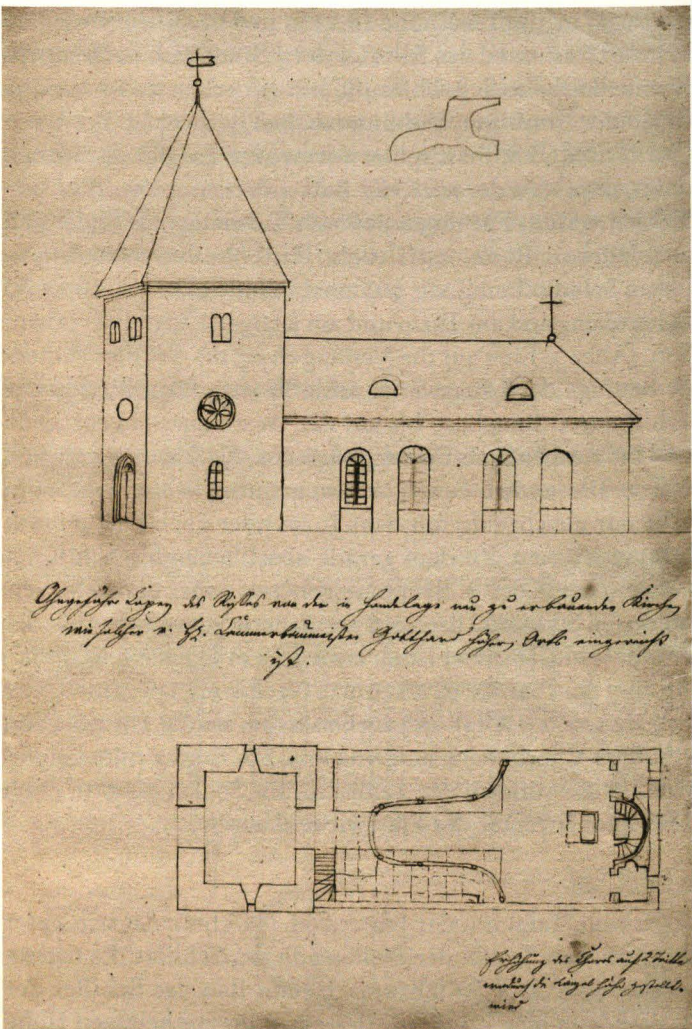 Ohngefährer Copey des Risses von der in Hondelage neu zu erbauenden Kirche,
wie solcher v. H. Cammerbaumeister Gotthard höhern Orts eingereicht
ist.
Erhöhung des Chores auf 2 Tritte
wodurch die Canzel höher gestellt
wird